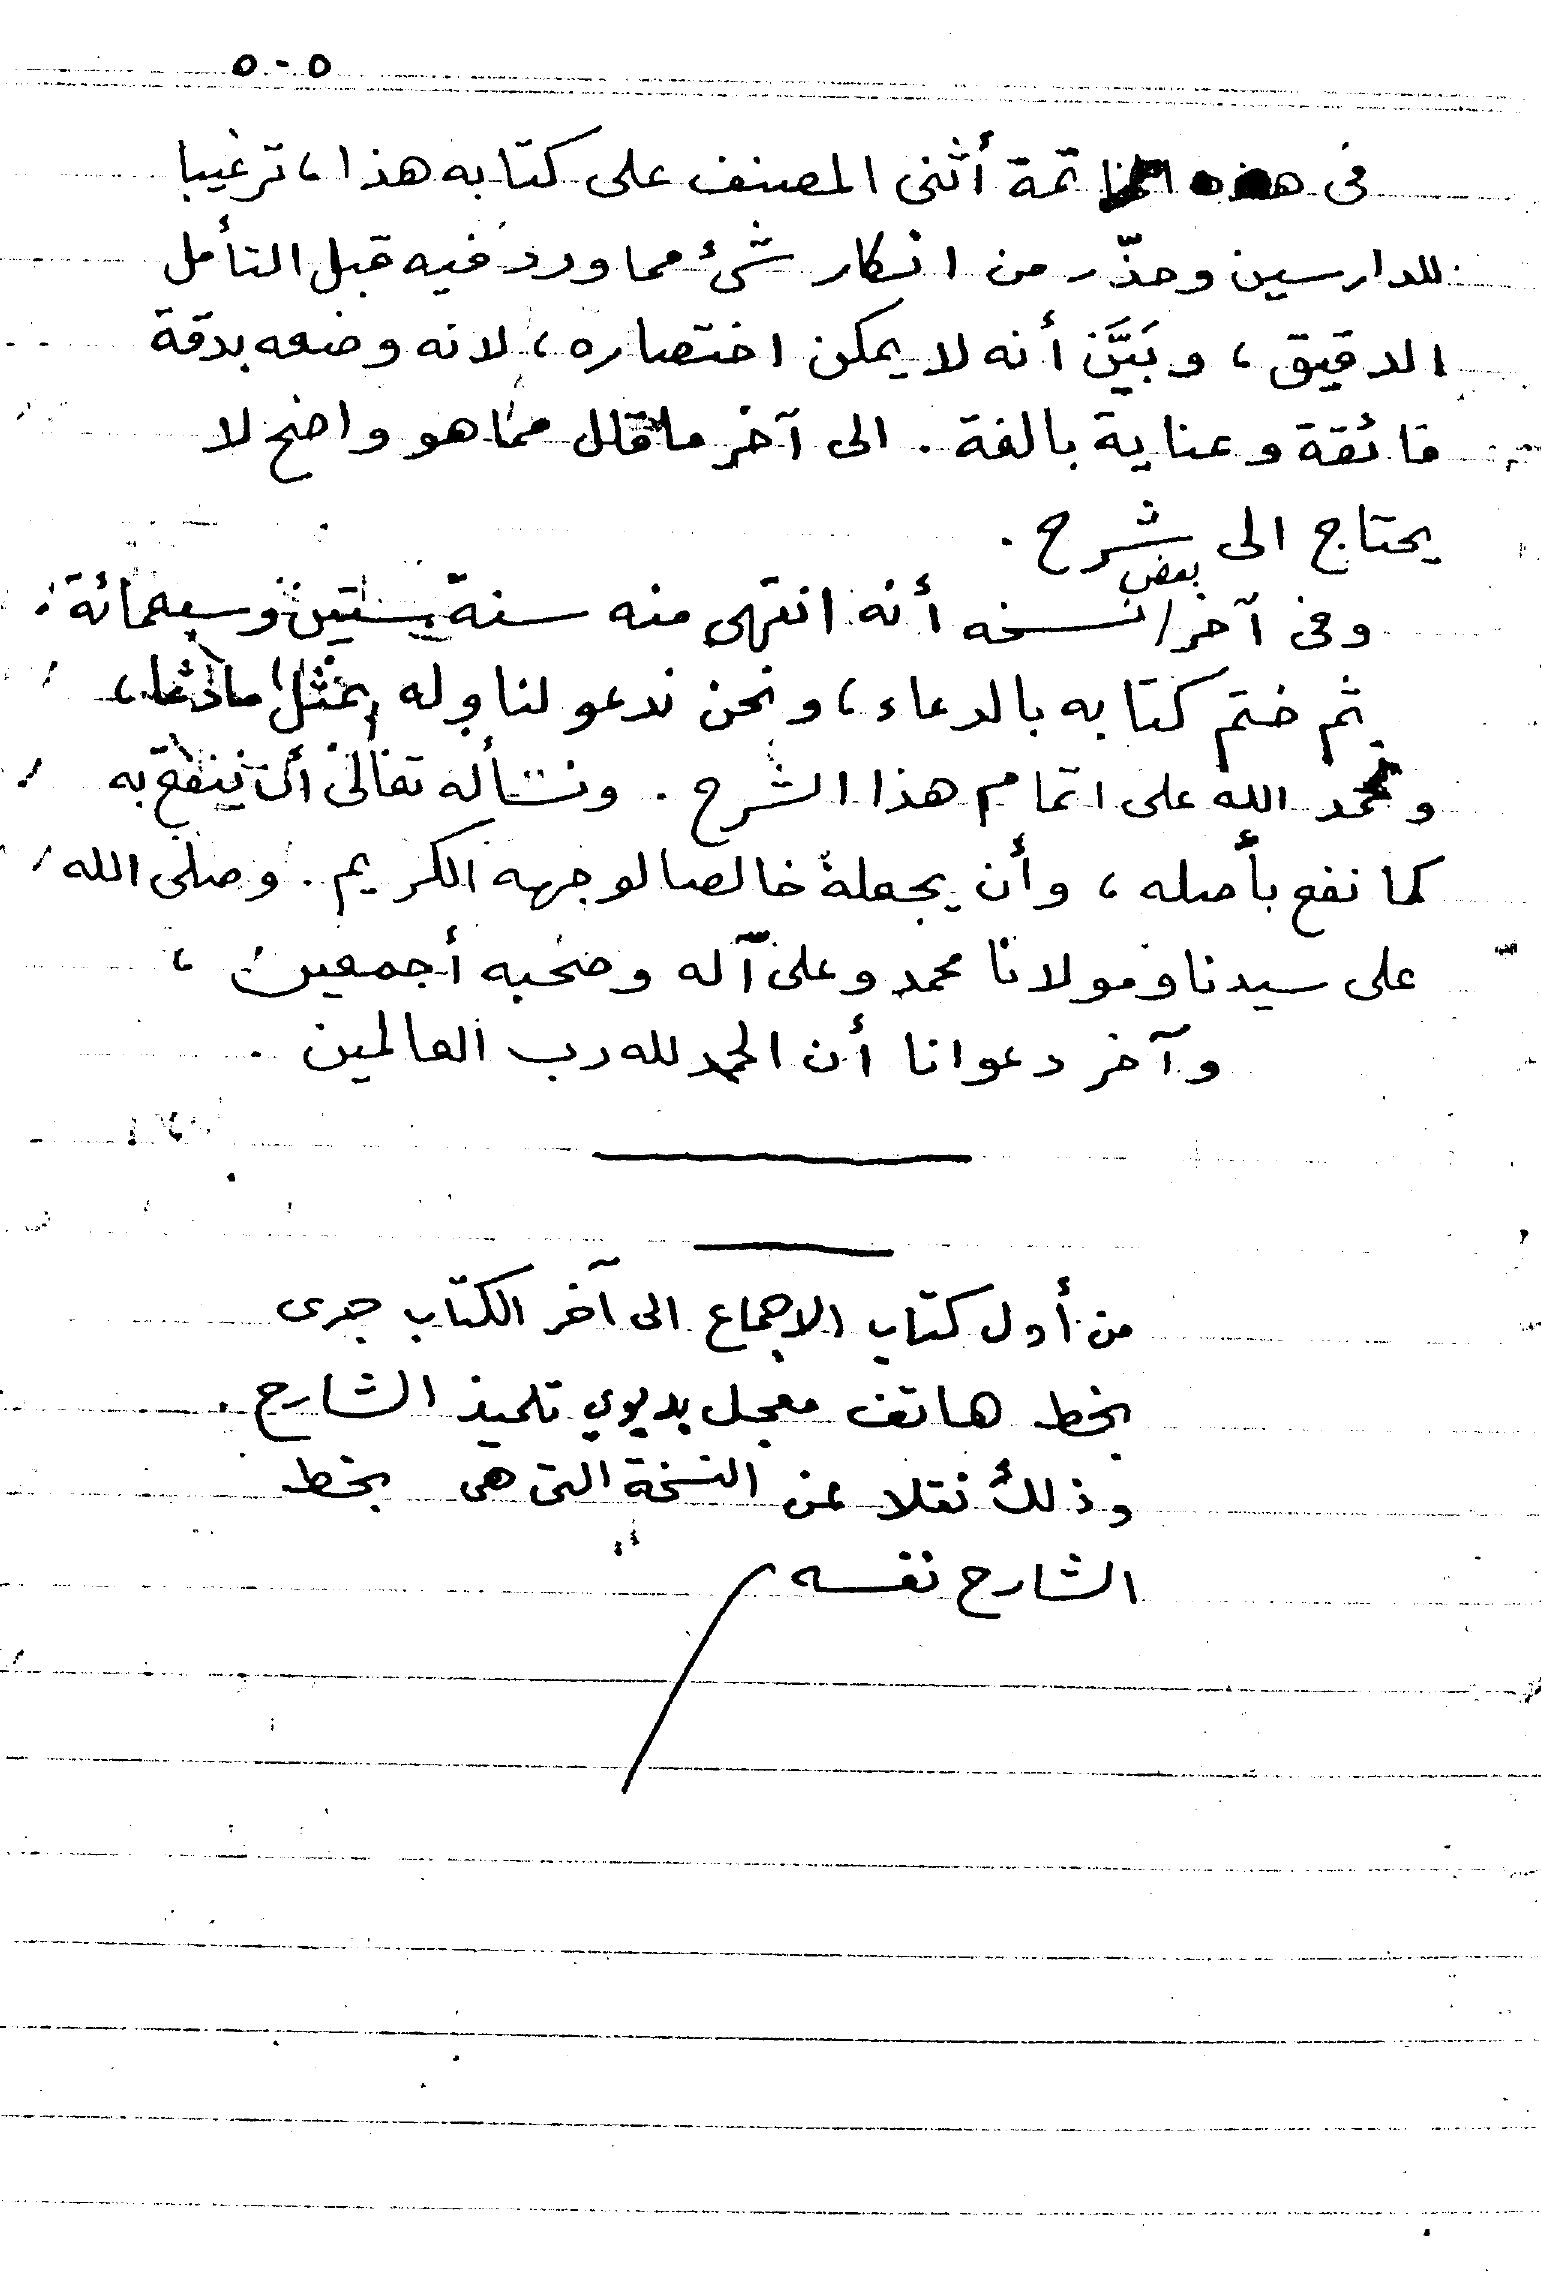 ٥٠٥
فى هذه الخاتمة أثنى المصنف على كتابه هذا، ترغيبا
للدارسين وحذّر من انكار شئ مما ورد فيه قبل التأمل
الدقيق، وبَيَّن أنه لا يمكن اختصاره، لانه وضعه بدقة
فائقة وعناية بالغة. الى آخر ما قال مما هو واضح لا
يحتاج الى شرح.
وفى آخر بعض نسخه أنه انتهى منه سنة ستين وسبعمائة.
ثم ختم كتابه بالدعاء، ونحن ندعو لنا وله بمثل ما دعا،
ونحمد الله على اتمام هذا الشرح. ونسأله تعالى أن ينفع به
كما نفع بأصله، وأن يجعله خالصا لوجهه الكريم. وصلى الله
على سيدنا ومولانا محمد وعلى آله وصحبه أجمعين،
وآخر دعوانا أن الحمد لله رب العالمين.
من أول كتاب الاجماع الى آخر الكتاب جرى
بخط هاتف معجل بديوي تلميذ الشارح.
وذلك نقلا عن النسخة التى هى بخط
الشارح نفسه